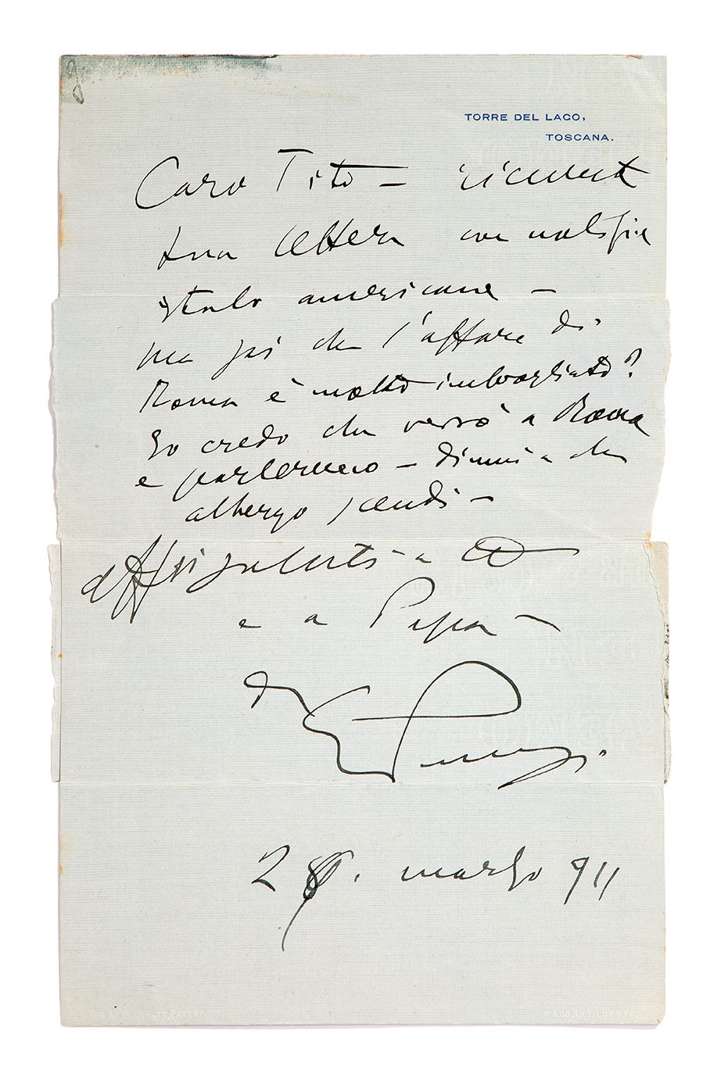 TORRE DEL LAGO,
TOSCANA.
Caro Tito – ricevuta
tua lettera con notizie
italo americane –
ma sai che l'affare di
Roma è molto imbrogliato?
Io credo che verrò a Roma
e parleremo – dimmi a che
albergo scendi –
aff saluti a te
e a Papà –
da GPuccini
28. marzo 911